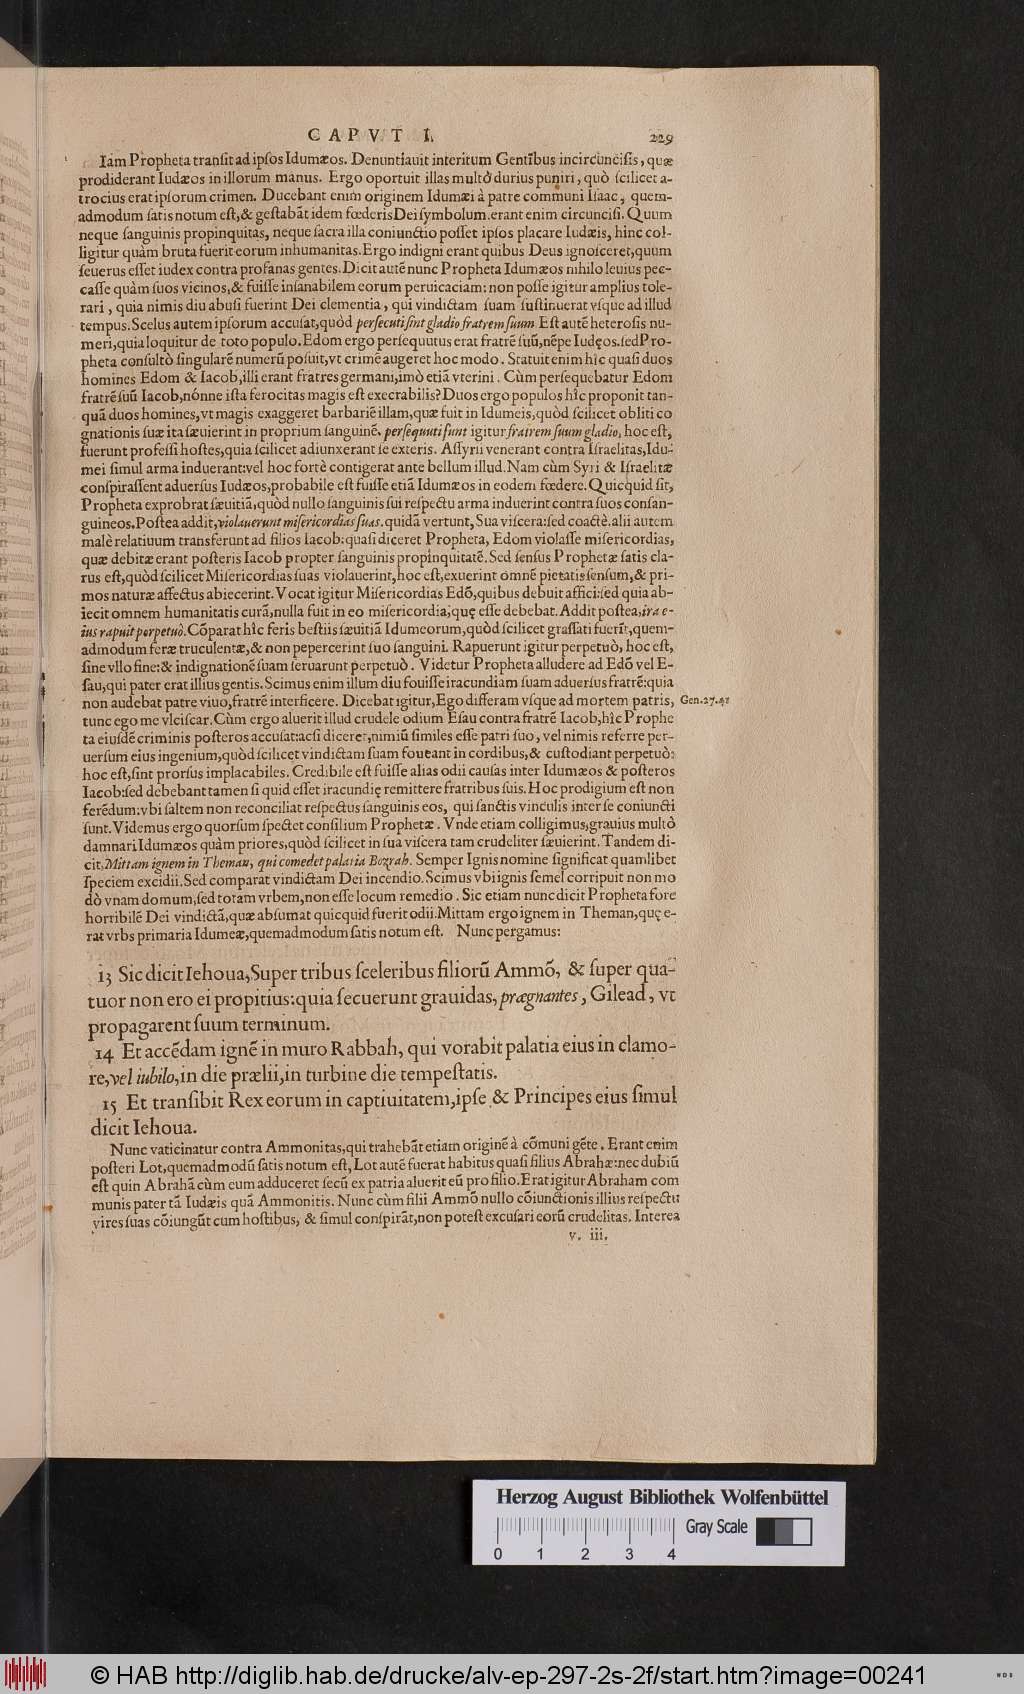 CAPVT I. 229
Iam Propheta transit ad ipſos Idumæos. Denuntiauit interitum Gentibus incircunciſis, quæ
prodiderant Iudæos in illorum manus. Ergo oportuit illas multò durius puniri, quò ſcilicet a-
trocius erat ipſorum crimen. Ducebant enim originem Idumæi à patre communi Iſaac, quem-
admodum ſatis notum eſt,& geſtabāt idem fœderis Dei ſymbolum. erant enim circunciſi. Quum
neque ſanguinis propinquitas, neque ſacra illa coniunctio poſſet ipſos placare Iudæis, hinc col-
ligitur quàm bruta fuerit eorum inhumanitas. Ergo indigni erant quibus Deus ignoſceret,quum
ſeuerus eſſet iudex contra profanas gentes. Dicit autē nunc Propheta Idumæos nihilo leuius pec-
caſſe quàm ſuos vicinos,& fuiſſe inſanabilem eorum peruicaciam: non poſſe igitur amplius tole-
rari, quia nimis diu abuſi fuerint Dei clementia, qui vindictam ſuam ſuſtinuerat vſque ad illud
tempus. Scelus autem ipſorum accuſat,quòd perſecuti ſint gladio fratrem ſuum. Eſt autē heteroſis nu-
meri,quia loquitur de toto populo. Edom ergo perſequutus erat fratrē ſuū,nēpe Iudęos. ſed Pro-
pheta conſultò ſingularē numerū poſuit,vt crimē augeret hoc modo. Statuit enim hîc quaſi duos
homines Edom & Iacob,illi erant fratres germani,imò etiā vterini. Cùm perſequebatur Edom
fratrē ſuū Iacob,nónne iſta ferocitas magis eſt execrabilis? Duos ergo populos hîc proponit tan-
quā duos homines,vt magis exaggeret barbariē illam,quæ fuit in Idumeis,quòd ſcilicet obliti co
gnationis ſuæ ita ſæuierint in proprium ſanguinē. perſequuti ſunt igitur fratrem ſuum gladio, hoc eſt,
fuerunt profeſſi hoſtes,quia ſcilicet adiunxerant ſe exteris. Aſſyrii venerant contra Iſraelitas,Idu-
mei ſimul arma induerant: vel hoc fortè contigerat ante bellum illud. Nam cùm Syri & Iſraelitæ
conſpiraſſent aduerſus Iudæos,probabile eſt fuiſſe etiā Idumæos in eodem fœdere. Quicquid ſit,
Propheta exprobrat ſæuitiā,quòd nullo ſanguinis ſui reſpectu arma induerint contra ſuos conſan-
guineos. Poſtea addit,violauerunt miſericordias ſuas. quidā vertunt, Sua viſcera: ſed coactè. alii autem
malè relatiuum transferunt ad filios Iacob: quaſi diceret Propheta, Edom violaſſe miſericordias,
quæ debitæ erant poſteris Iacob propter ſanguinis propinquitatē. Sed ſenſus Prophetæ ſatis cla-
rus eſt,quòd ſcilicet Miſericordias ſuas violauerint,hoc eſt,exuerint omnē pietatis ſenſum,& pri-
mos naturæ affectus abiecerint. Vocat igitur Miſericordias Edō,quibus debuit affici: ſed quia ab-
iecit omnem humanitatis curā,nulla fuit in eo miſericordia,quę eſſe debebat. Addit poſtea,ira e-
ius rapuit perpetuò. Cōparat hîc feris beſtiis ſæuitiā Idumeorum,quòd ſcilicet graſſati fuerīt,quem-
admodum feræ truculentæ,& non pepercerint ſuo ſanguini. Rapuerunt igitur perpetuò, hoc eſt,
ſine vllo fine: & indignationē ſuam ſeruarunt perpetuò. Videtur Propheta alludere ad Edō vel E-
ſau,qui pater erat illius gentis. Scimus enim illum diu fouiſſe iracundiam ſuam aduerſus fratrē: quia
non audebat patre viuo,fratrē interficere. Dicebat igitur,Ego differam vſque ad mortem patris, Gen.27.41
tunc ego me vlciſcar. Cùm ergo aluerit illud crudele odium Eſau contra fratrē Iacob,hîc Prophe
ta eiuſdē criminis poſteros accuſat: acſi diceret,nimiū ſimiles eſſe patri ſuo, vel nimis referre per-
uerſum eius ingenium,quòd ſcilicet vindictam ſuam foueant in cordibus,& cuſtodiant perpetuò:
hoc eſt,ſint prorſus implacabiles. Credibile eſt fuiſſe alias odii cauſas inter Idumæos & poſteros
Iacob: ſed debebant tamen ſi quid eſſet iracundię remittere fratribus ſuis. Hoc prodigium eſt non
ferēdum: vbi ſaltem non reconciliat reſpectus ſanguinis eos, qui ſanctis vinculis inter ſe coniuncti
ſunt. Videmus ergo quorſum ſpectet conſilium Prophetæ. Vnde etiam colligimus,grauius multò
damnari Idumæos quàm priores,quòd ſcilicet in ſua viſcera tam crudeliter ſæuierint. Tandem di-
cit,Mittam ignem in Theman, qui comedet palatia Bozrah. Semper Ignis nomine ſignificat quamlibet
ſpeciem excidii. Sed comparat vindictam Dei incendio. Scimus vbi ignis ſemel corripuit non mo
dò vnam domum,ſed totam vrbem,non eſſe locum remedio. Sic etiam nunc dicit Propheta fore
horribilē Dei vindictā,quæ abſumat quicquid fuerit odii. Mittam ergo ignem in Theman,quę e-
rat vrbs primaria Idumeæ,quemadmodum ſatis notum eſt. Nunc pergamus:
13 Sic dicit Iehoua,Super tribus ſceleribus filiorū Ammō, & ſuper qua-
tuor non ero ei propitius: quia ſecuerunt grauidas, prægnantes, Gilead, vt
propagarent ſuum terminum.
14 Et accēdam ignē in muro Rabbah, qui vorabit palatia eius in clamo-
re,vel iubilo,in die prælii,in turbine die tempeſtatis.
15 Et tranſibit Rex eorum in captiuitatem,ipſe & Principes eius ſimul
dicit Iehoua.
Nunc vaticinatur contra Ammonitas,qui trahebāt etiam originē à cōmuni gēte. Erant enim
poſteri Lot,quemadmodū ſatis notum eſt, Lot autē fuerat habitus quaſi filius Abrahæ: nec dubiū
eſt quin Abrahā cùm eum adduceret ſecū ex patria aluerit eū pro filio. Erat igitur Abraham com
munis pater tā Iudæis quā Ammonitis. Nunc cùm filii Ammō nullo cōiunctionis illius reſpectu
vires ſuas cōiungūt cum hoſtibus, & ſimul conſpirāt,non poteſt excuſari eorū crudelitas. Interea
v. iii.
Herzog August Bibliothek Wolfenbüttel
Gray Scale
0 1 2 3 4
© HAB http://diglib.hab.de/drucke/alv-ep-297-2s-2f/start.htm?image=00241